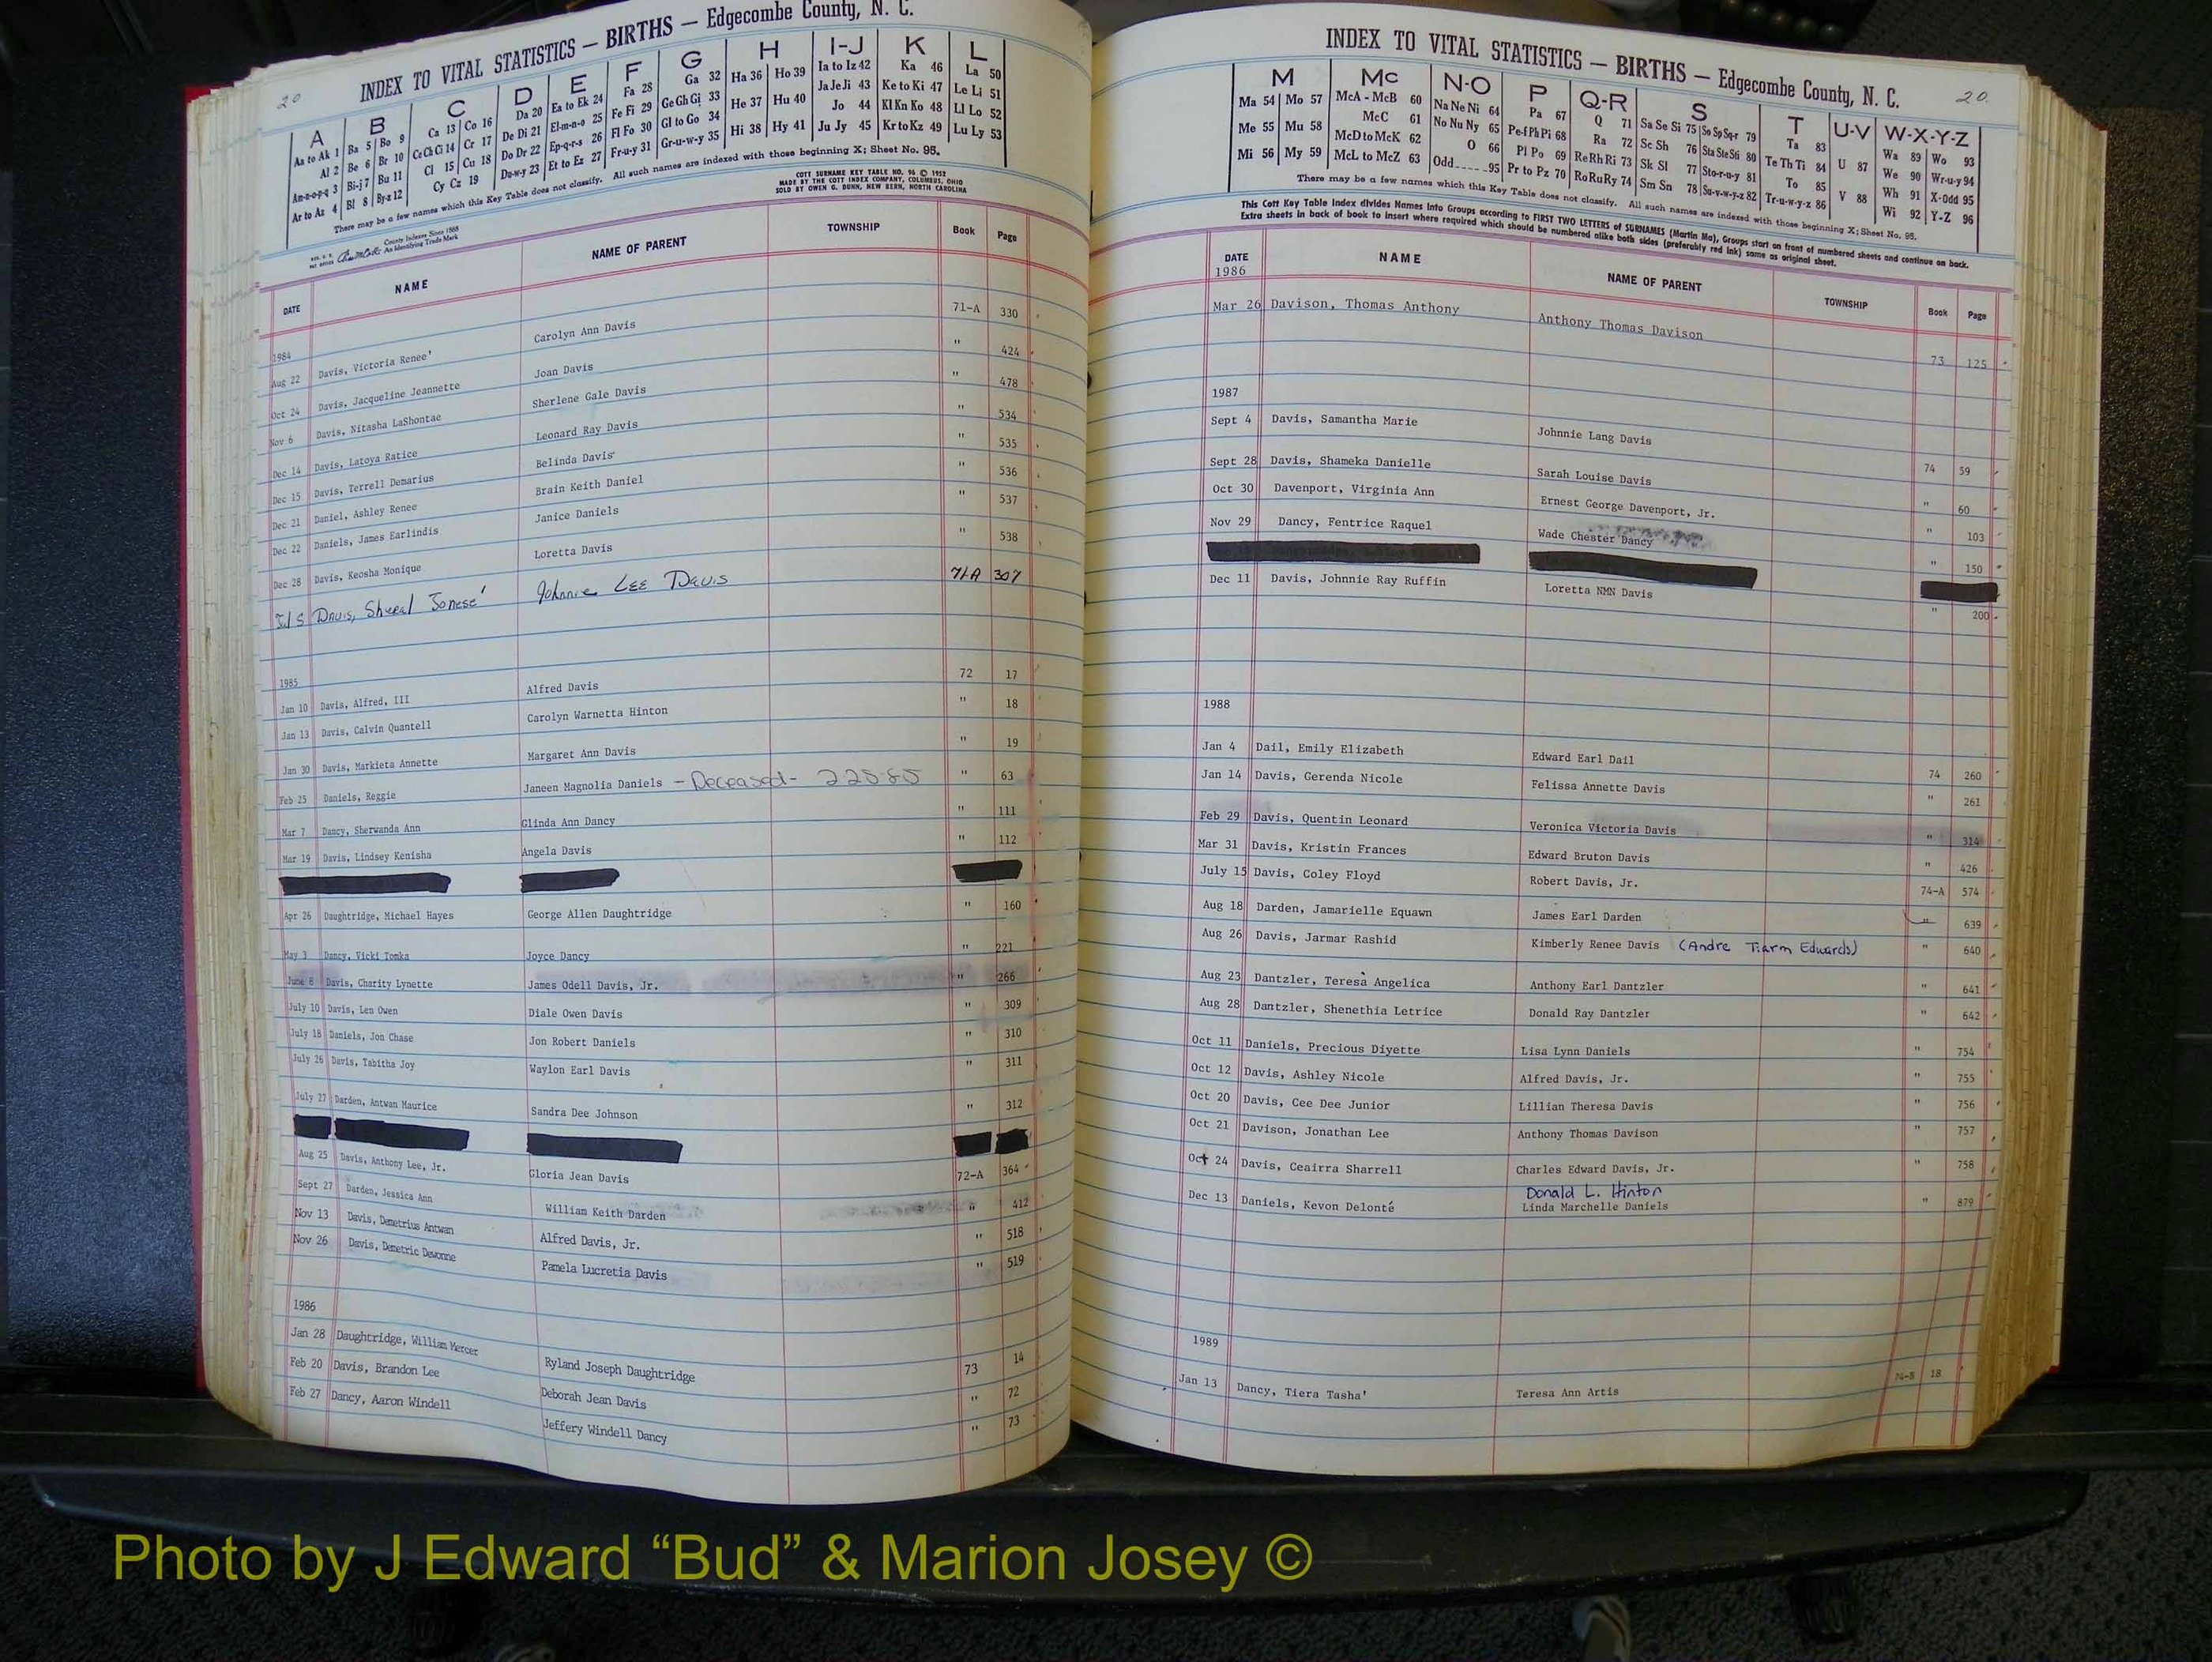 20
INDEX TO VITAL STATISTICS — BIRTHS — Edgecombe County, N. C.
A B C D E F G H I-J K L
Aa to Ak 1 Ba 5 Bo 9 Ca 13 Co 16 Da 20 Ea to Ek 24 Fa 28 Ga 32 Ha 36 Ho 39 Ia to Iz 42 Ka 46 La 50
Al 2 Be 6 Br 10 Ce Ch Ci 14 Cr 17 De Di 21 El-m-n-o 25 Fe Fi 29 Ge Gh Gi 33 He 37 Hu 40 Ja Je Ji 43 Ke to Ki 47 Le Li 51
Am-n-o-p-q 3 Bi-j 7 Bu 11 Cl 15 Cu 18 Do Dr 22 Ep-q-r-s 26 Fl Fo 30 Gl to Go 34 Hi 38 Hy 41 Jo 44 Kl Kn Ko 48 Ll Lo 52
Ar to Az 4 Bl 8 By-z 12 Cy Cz 19 Du-w-y 23 Et to Ez 27 Fr-u-y 31 Gr-u-w-y 35 Ju Jy 45 Kr to Kz 49 Lu Ly 53
There may be a few names which this Key Table does not classify. All such names are indexed with those beginning X; Sheet No. 96.
COTT SURNAME KEY TABLE NO. 96 © 1952
MADE BY THE COTT INDEX COMPANY, COLUMBUS, OHIO
SOLD BY OWEN G. DUNN, NEW BERN, NORTH CAROLINA
County Indexes Since 1888
An Identifying Trade Mark
DATE NAME NAME OF PARENT TOWNSHIP Book Page
1984
Aug 22 Davis, Victoria Renee' Carolyn Ann Davis 71-A 330
Oct 24 Davis, Jacqueline Jeannette Joan Davis " 424
Nov 6 Davis, Nitasha LaShontae Sherlene Gale Davis " 478
Dec 14 Davis, Latoya Ratice Leonard Ray Davis " 534
Dec 15 Davis, Terrell Demarius Belinda Davis " 535
Dec 21 Daniel, Ashley Renee Brain Keith Daniel " 536
Dec 22 Daniels, James Earlindis Janice Daniels " 537
Dec 28 Davis, Keosha Monique Loretta Davis " 538
Davis, Sheral Jonese' Johnnie Lee Davis 71-A 307
1985
Jan 10 Davis, Alfred, III Alfred Davis 72 17
Jan 13 Davis, Calvin Quantell Carolyn Warnetta Hinton " 18
Jan 30 Davis, Markieta Annette Margaret Ann Davis " 19
Feb 25 Daniels, Reggie Janeen Magnolia Daniels - Deceased - 2 25 85 " 63
Mar 7 Dancy, Sherwanda Ann Glinda Ann Dancy " 111
Mar 19 Davis, Lindsey Kenisha Angela Davis " 112
Apr 26 Daughtridge, Michael Hayes George Allen Daughtridge " 160
May 3 Dancy, Vicki Tomka Joyce Dancy " 221
June 8 Davis, Charity Lynette James Odell Davis, Jr. " 266
July 10 Davis, Len Owen Diale Owen Davis " 309
July 18 Daniels, Jon Chase Jon Robert Daniels " 310
July 26 Davis, Tabitha Joy Waylon Earl Davis " 311
July 27 Darden, Antwan Maurice Sandra Dee Johnson " 312
Aug 25 Davis, Anthony Lee, Jr. Gloria Jean Davis 72-A 364
Sept 27 Darden, Jessica Ann William Keith Darden " 412
Nov 13 Davis, Demetrius Antwan Alfred Davis, Jr. " 518
Nov 26 Davis, Demetric Dewonne Pamela Lucretia Davis " 519
1986
Jan 28 Daughtridge, William Mercer Ryland Joseph Daughtridge 73 14
Feb 20 Davis, Brandon Lee Deborah Jean Davis " 72
Feb 27 Dancy, Aaron Windell Jeffery Windell Dancy " 73
INDEX TO VITAL STATISTICS — BIRTHS — Edgecombe County, N. C.
20
M Mc N-O P Q-R S T U-V W-X-Y-Z
Ma 54 Mo 57 McA - McB 60 Na Ne Ni 64 Pa 67 Q 71 Sa Se Si 75 So Sp Sq-r 79 Ta 83 U 87 Wa 89 Wo 93
Me 55 Mu 58 McC 61 No Nu Ny 65 Pe-f Ph Pi 68 Ra 72 Sc Sh 76 Sta Ste Sti 80 Te Th Ti 84 V 88 We 90 Wr-u-y 94
Mi 56 My 59 McD to McK 62 O 66 Pl Po 69 Re Rh Ri 73 Sk Sl 77 Sto-r-u-y 81 To 85 Wh 91 X-Odd 95
McL to McZ 63 Odd 95 Pr to Pz 70 Ro Ru Ry 74 Sm Sn 78 Su-v-w-y-z 82 Tr-u-w-y-z 86 Wi 92 Y-Z 96
There may be a few names which this Key Table does not classify. All such names are indexed with those beginning X; Sheet No. 96.
This Cott Key Table Index divides Names into Groups according to FIRST TWO LETTERS of SURNAMES (Martin Ma), Groups start on front of numbered sheets and continue on back.
Extra sheets in back of book to insert where required which should be numbered alike both sides (preferably red ink) same as original sheet.
DATE NAME NAME OF PARENT TOWNSHIP Book Page
1986
Mar 26 Davison, Thomas Anthony Anthony Thomas Davison 73 125
1987
Sept 4 Davis, Samantha Marie Johnnie Lang Davis 74 59
Sept 28 Davis, Shameka Danielle Sarah Louise Davis " 60
Oct 30 Davenport, Virginia Ann Ernest George Davenport, Jr. " 103
Nov 29 Dancy, Fentrice Raquel Wade Chester Dancy " 150
Dec 11 Davis, Johnnie Ray Ruffin Loretta NMN Davis " 200
1988
Jan 4 Dail, Emily Elizabeth Edward Earl Dail 74 260
Jan 14 Davis, Gerenda Nicole Felissa Annette Davis " 261
Feb 29 Davis, Quentin Leonard Veronica Victoria Davis " 314
Mar 31 Davis, Kristin Frances Edward Bruton Davis " 426
July 15 Davis, Coley Floyd Robert Davis, Jr. 74-A 574
Aug 18 Darden, Jamarielle Equawn James Earl Darden " 639
Aug 26 Davis, Jarmar Rashid Kimberly Renee Davis (Andre Tiarm Edwards) " 640
Aug 23 Dantzler, Teresa Angelica Anthony Earl Dantzler " 641
Aug 28 Dantzler, Shenethia Letrice Donald Ray Dantzler " 642
Oct 11 Daniels, Precious Diyette Lisa Lynn Daniels " 754
Oct 12 Davis, Ashley Nicole Alfred Davis, Jr. " 755
Oct 20 Davis, Cee Dee Junior Lillian Theresa Davis " 756
Oct 21 Davison, Jonathan Lee Anthony Thomas Davison " 757
Oct 24 Davis, Ceairra Sharrell Charles Edward Davis, Jr. " 758
Donald L. Hinton
Dec 13 Daniels, Kevon Delonté Linda Marchelle Daniels " 879
1989
Jan 13 Dancy, Tiera Tasha' Teresa Ann Artis 74-B 18
Photo by J Edward “Bud” & Marion Josey ©